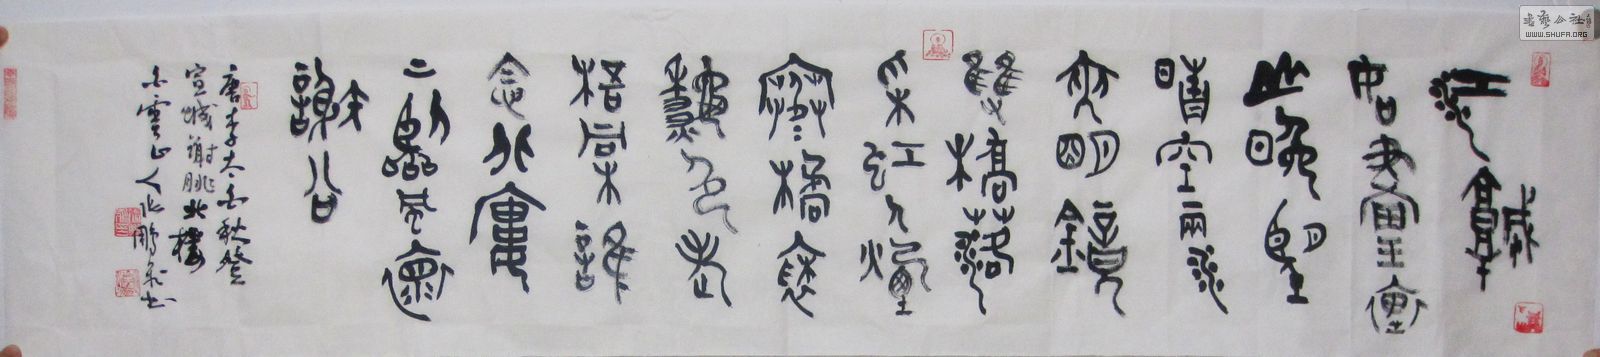 江城
如畫裏
山晚望
晴空兩水
夾明鏡
雙橋落
采虹人煙
寒橘柚
秋色老
梧桐誰
念北樓
上臨風懷
謝公
唐李太白秋登
宣城謝朓北樓
白雲山人鵬書
書藝公社
WWW.SHUFA.ORG